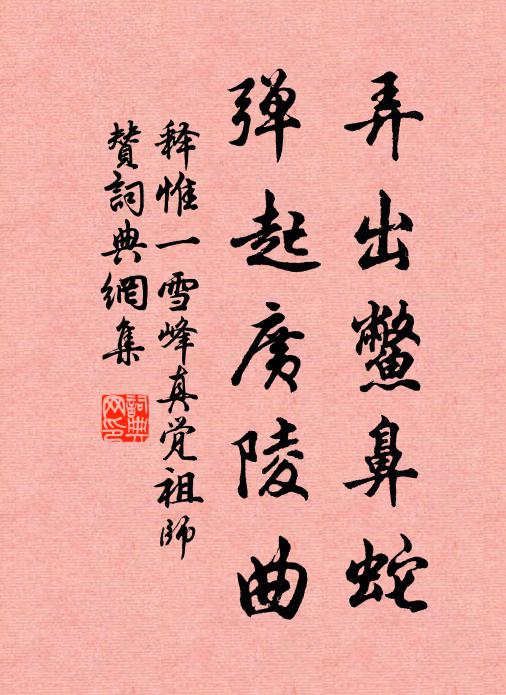 弄出鳖鼻蛇
弹起广陵曲
释惟一雪峰真觉祖师
赞詞典網集
詞典
网印